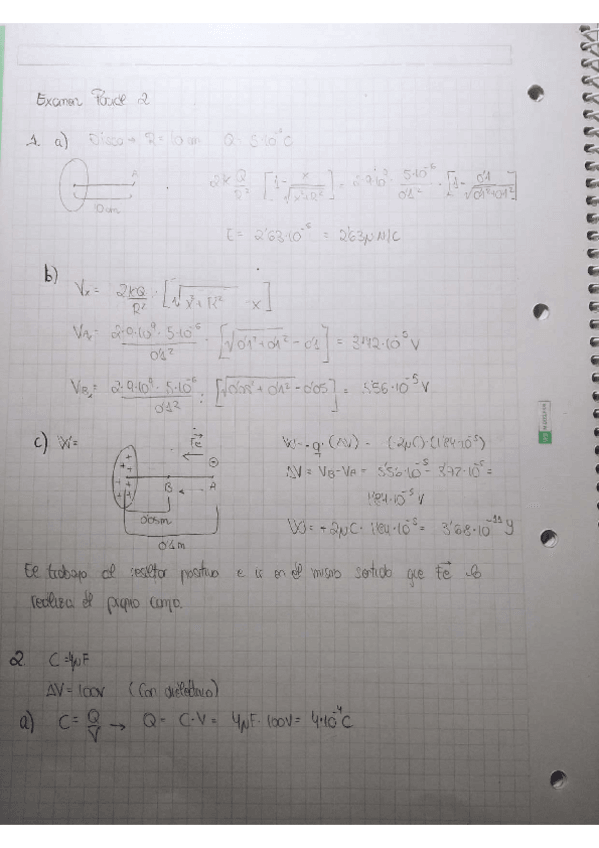 Examen Parcial 2
1. a) Disco → R = 10 cm Q = 5·10⁻⁶ C
A
10cm
2kQ/R² · [1 - x/√(x²+R²)] = 2·9·10⁹ · 5·10⁻⁶/0'1² · [1 - 0'1/√(0'1²+0'1²)]
E = 2'63·10⁻⁶ = 2'63 μN/C
b) Vx = 2kQ/R² · [√(x²+R²) - x]
VA = 2·9·10⁹·5·10⁻⁶/0'1² · [√(0'1²+0'1²) - 0'1] = 3'72·10⁻⁵ V
VB = 2·9·10⁹·5·10⁻⁶/0'1² · [√(0'05²+0'1²) - 0'05] = 5'56·10⁻⁵ V
c) W =
Fe
B
A
0'05m
0'1m
W = -q·(ΔV) = (-2μC)·(1'84·10⁻⁵)
ΔV = VB - VA = 5'56·10⁻⁵ - 3'72·10⁻⁵ =
1'84·10⁻⁵ V
W = +2μC · 1'84·10⁻⁵ = 3'68·10⁻¹¹ J
El trabajo al resultar positivo e ir en el mismo sentido que Fe lo
realiza el propio campo.
2. C = 4μF
ΔV = 100V (Con dieléctrico)
a) C = Q/V → Q = C·V = 4μF·100V = 4·10⁻⁴ C